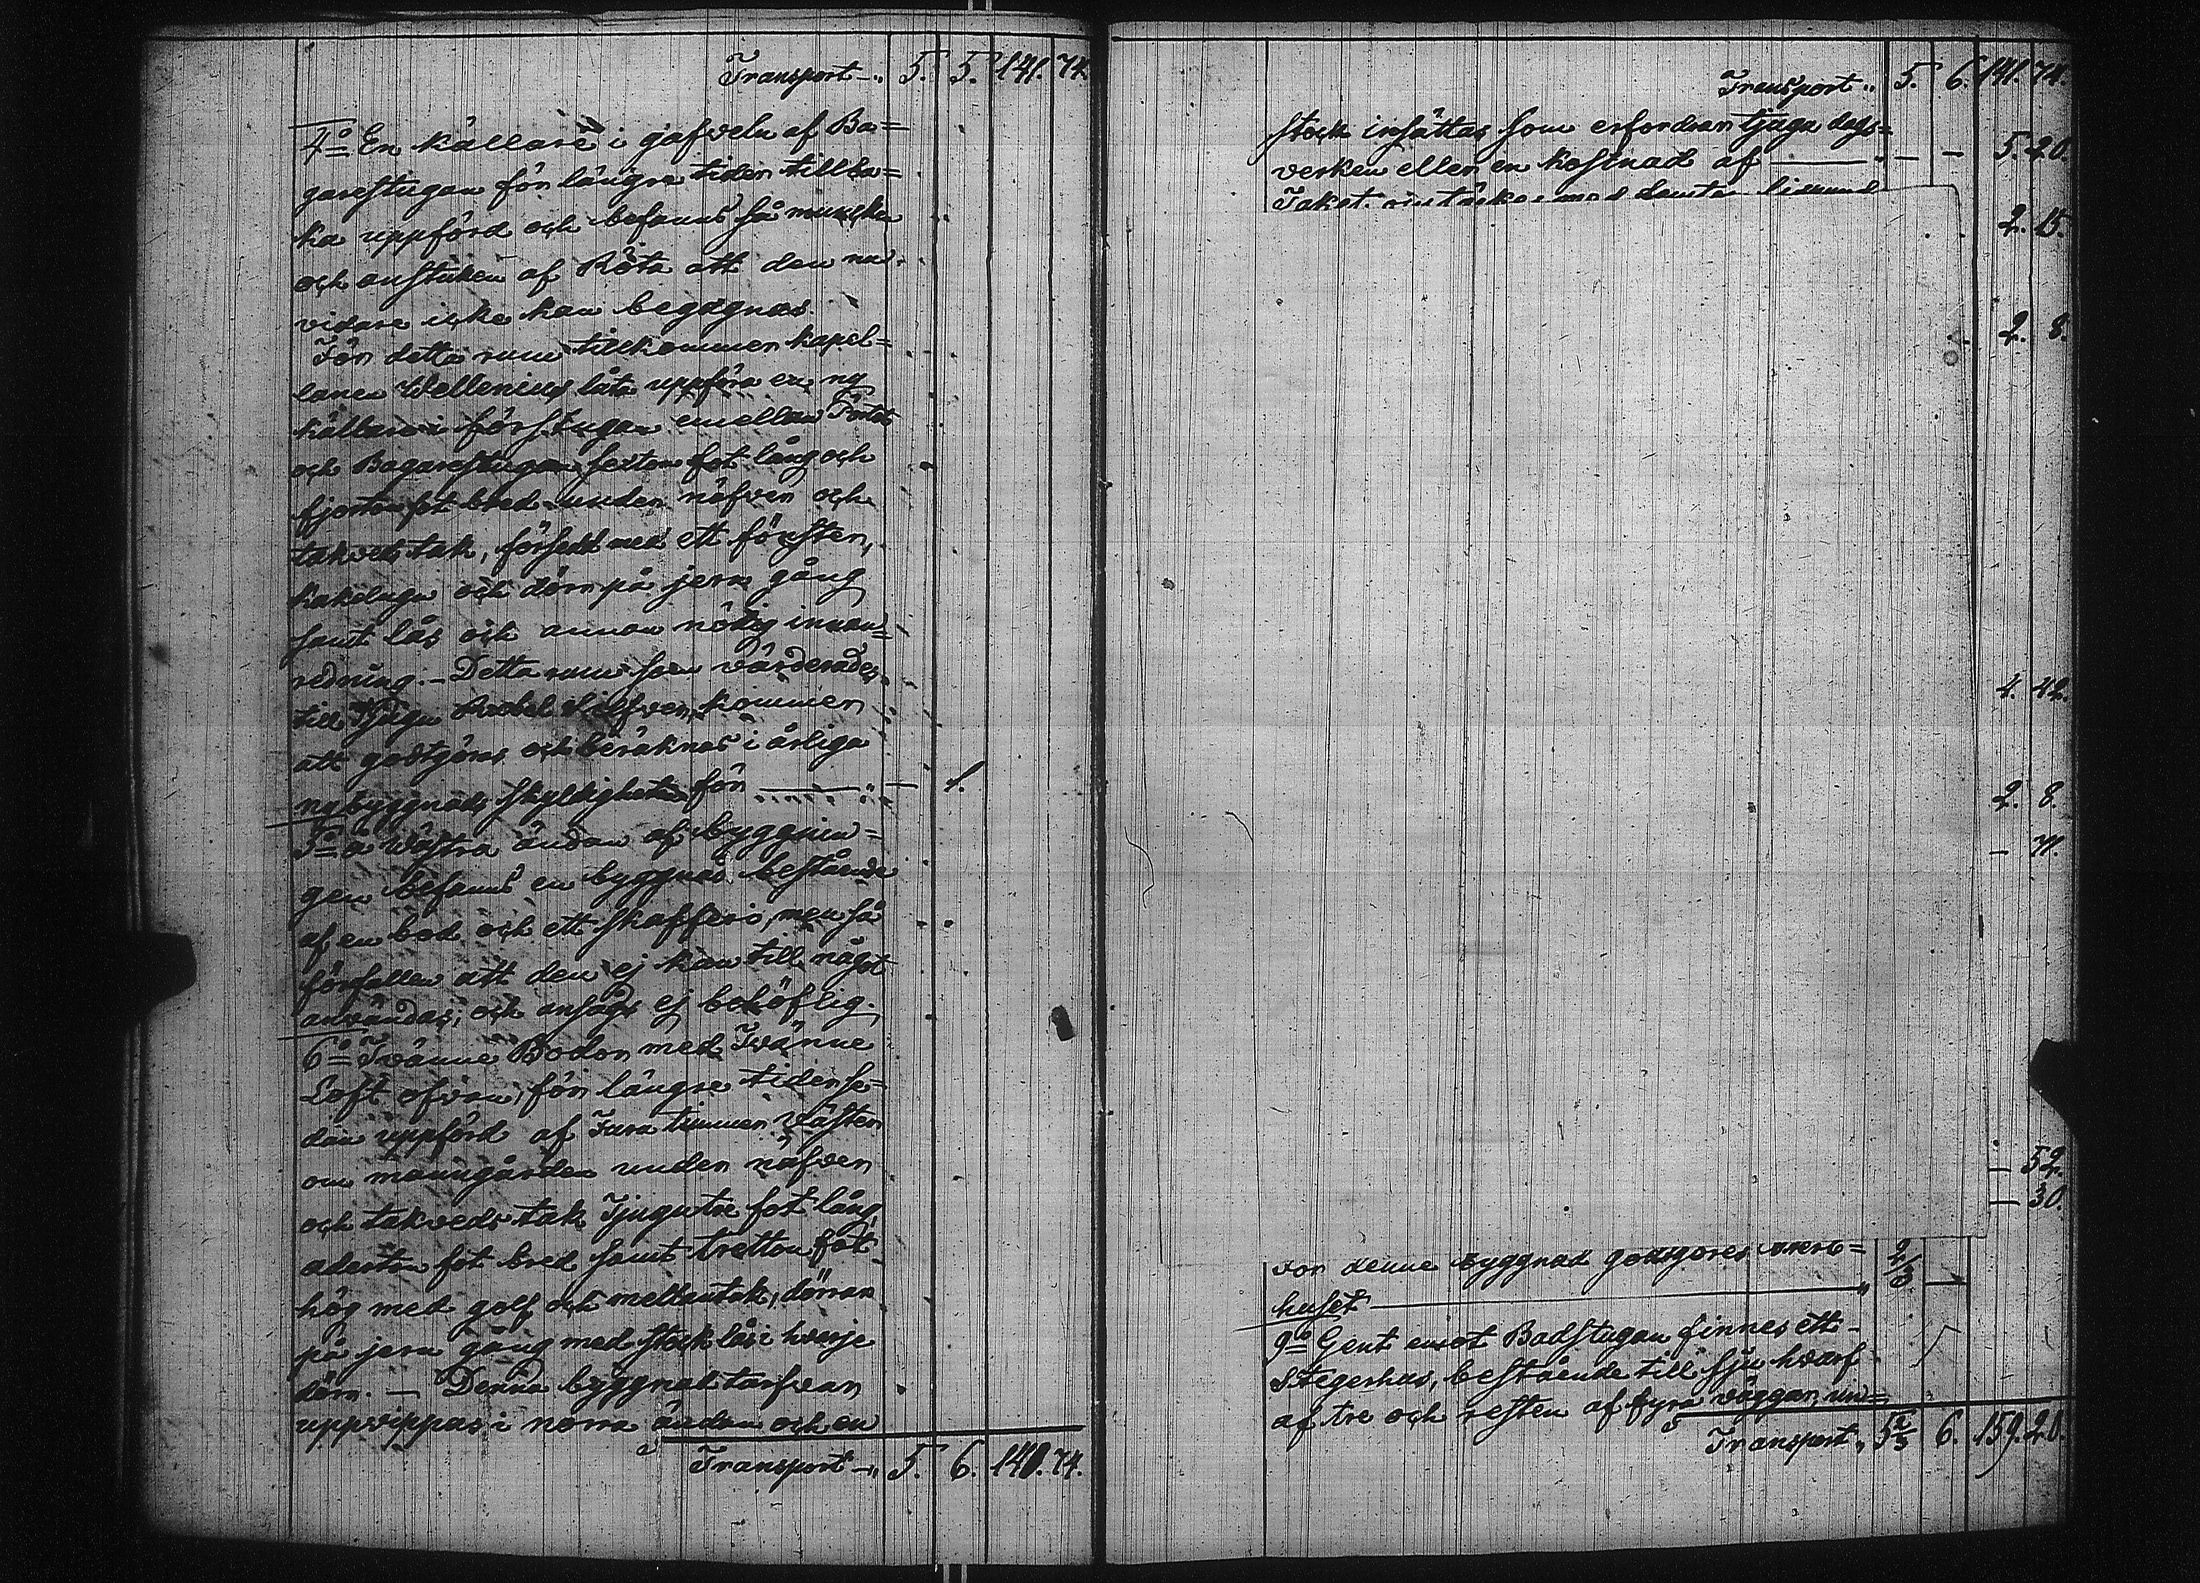 Transport —„ 5. 5. 141. 74
4:o En källare i gafveln af Ba=
garestugan för längre tiden tillba=
ka uppförd och befanns så murcken
och anstucken af Röta att den na-
vidare icke kan begagnas.
För detta rum tillkommer kapel=
lanen Wellenius låta uppföra en ny
källare i förstugan emellan Pörtet
och Bagarestugan sexton fot lång och
fjorton fot bred under näfver och
takveds tak, försedd med ett fönster,
kakelugn och dörr på jern gång
samt lås och annan nödig inran=
redning. — Detta rum som värderades
till Tjugu Rubel Silfver, kommer
att godtgöras och beräknas i årliga
nybyggnads skyldigheten för —— „ — 1.
5:o I Västra ändan af byggnin=
gen befanns en byggnad bestående
af en bod och ett skafferi, men så
förfallen att den ej kan till något
användas, och ansågs ej behöflig.
6:o Tvänne Bodor med Tvänne
Loft ofvan, för längre tiden se=
dan uppförd af Furu timmer väster
om manngården under näfver
och takveds tak Tjugutre fot lång
aderton fot bred samt tretton fot
hög med golf och mellantak, dörrar
på jern gång med stock lås i hvarje
dörr. — Denna byggnad tarfvar
uppvippas i norra ändan och en
Transport —„ 5. 6. 141. 74.
Transport „ 5. 6. 141. 74.
stock insättas som erfordrar tjugu dags=
verken eller en kostnad af —— „ — — 5. 20.
Taket
2. 15.
2. 8.
4. 42.
2. 8.
— 71.
— 52.
— 30.
För denne byggnad godtgöres
huset —— „ 2/3 —
9:o Gent emot Badstugan finnes ett
Stegerhus, bestående till sju hvarf
af tre och resten af fyra väggar, un=
Transport „ 5 2/3 6. 159. 20.